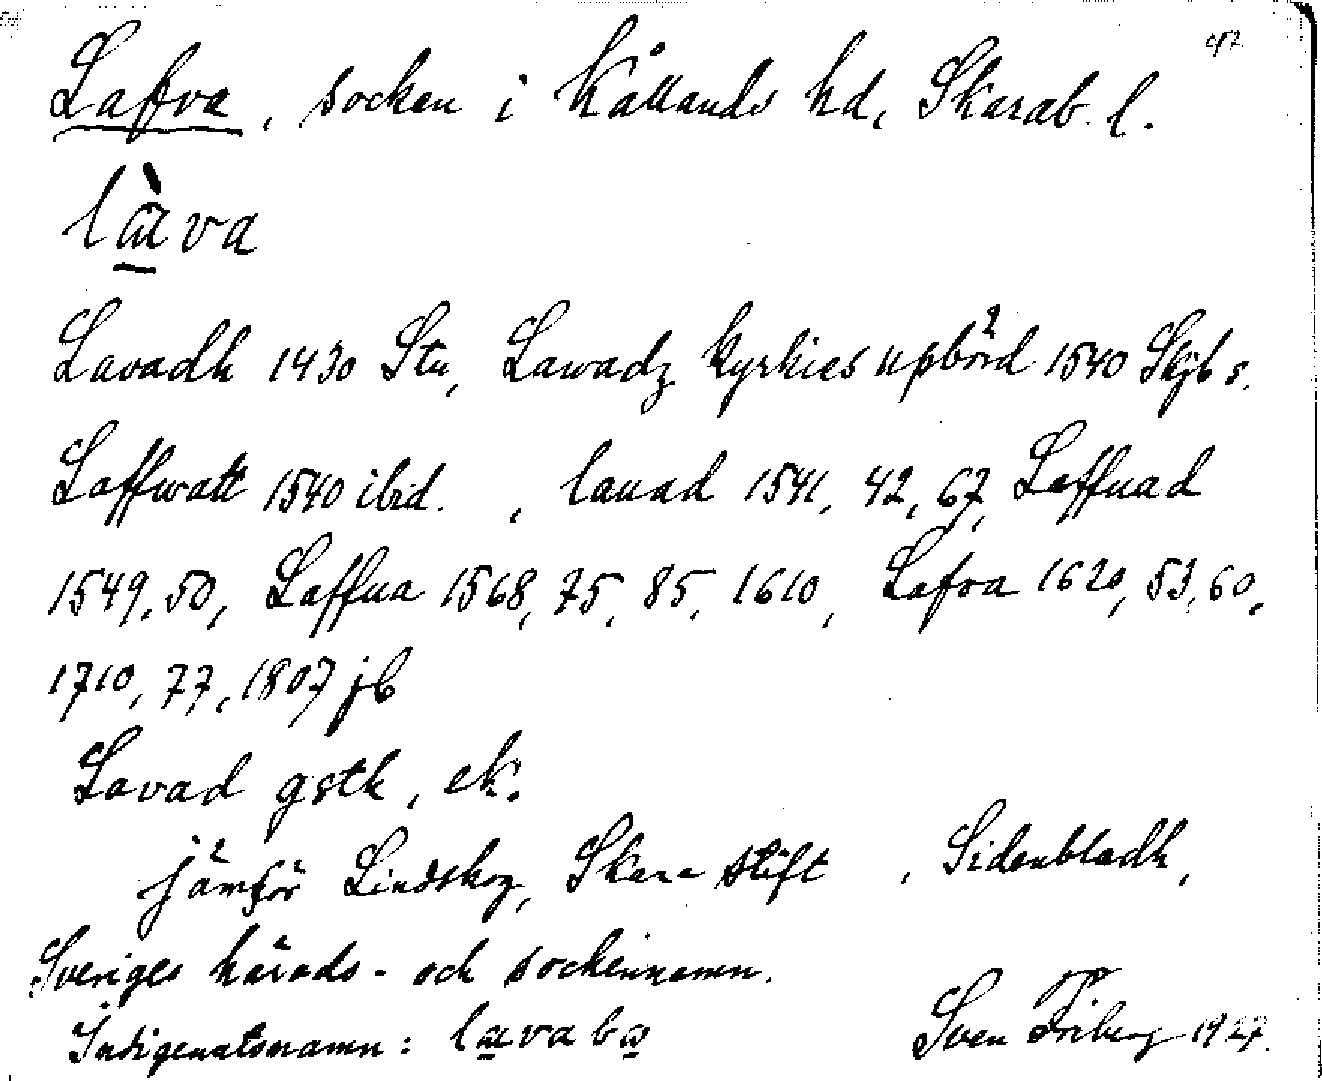 Lafva, socken i Kållands hd, Skarab. l.
Lavadh 1430 Stu, Lawadz kyrkies upbörd 1540 Skjb s.
Laffwatt 1540 ibid. , lauad 1541, 42, 67, Laffuad
1549, 50, Laffua 1568, 75, 85, 1610, Lafva 1620, 53, 60,
1710, 77, 1807 jb
Lavad gstk, ek.
jämför Lindskog, Skara stift , Sidenbladh,
Sveriges härads- och sockennamn.
Indigenatsnamn:
Sven Friberg 1927.